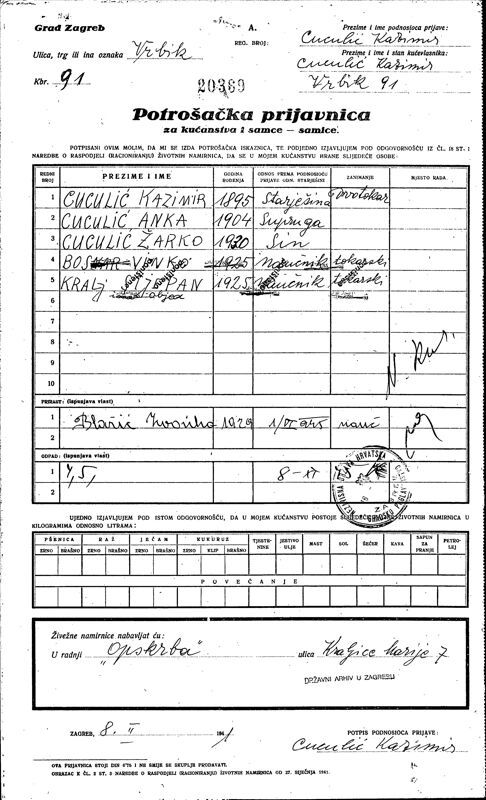 Grad Zagreb
A.
REG. BROJ:
Prezime i ime podnosioca prijave:
Cuculić Kazimir
Ulica, trg ili ina oznaka Vrbik
Prezime i ime i stan kućevlasnika:
Cuculić Kazimir
Kbr. 91
Vrbik 91
20369
Potrošačka prijavnica
za kućanstva i samce — samice.
POTPISANI OVIM MOLIM, DA MI SE IZDA POTROŠAČKA ISKAZNICA, TE PODJEDNO IZJAVLJUJEM POD ODGOVORNOŠĆU IZ ČL. 18 ST. 1
NAREDBE O RASPODJELI (RACIONIRANJU) ŽIVOTNIH NAMIRNICA, DA SE U MOJEM KUĆANSTVU HRANE SLIJEDEĆE OSOBE:
REDNI BROJ PREZIME I IME GODINA ROĐENJA ODNOS PREMA PODNOSIOCU PRIJAVE ODN. STARJEŠINI ZANIMANJE MJESTO RADA
1 CUCULIĆ KAZIMIR 1895 Starješina
2 CUCULIĆ ANKA 1904 Supruga
3 CUCULIĆ ŽARKO 1930 Sin
4 VINKO 1925 Naučnik tokarski
5 KRALJ 1925 Naučnik tokarski
6
7
8
9
10
PRIRAST: (ispunjava vlast)
1 1929 nauč
2
OTPAD: (ispunjava vlast)
1 4,5, 8-XI
2
UJEDNO IZJAVLJUJEM POD ISTOM ODGOVORNOŠĆU, DA U MOJEM KUĆANSTVU POSTOJE SLIJEDEĆE ŽIVOTNIH NAMIRNICA U
KILOGRAMIMA ODNOSNO LITRAMA:
PŠENICA RAŽ JEČAM KUKURUZ TJESTENINE JESTIVO ULJE MAST SOL ŠEĆER KAVA SAPUN ZA PRANJE PETROLEJ
ZRNO BRAŠNO ZRNO BRAŠNO ZRNO BRAŠNO ZRNO KLIP BRAŠNO
POVEĆANJE
Živežne namirnice nabavljat ću:
U radnji „Opskrba” ulica Kraljice Marije 7
DRŽAVNI ARHIV U ZAGREBU
ZAGREB, 8. II 1941
POTPIS PODNOSIOCA PRIJAVE:
Cuculić Kazimir
OVA PRIJAVNICA STOJI DIN 0'75 I NE SMIJE SE SKUPLJE PRODAVATI.
OBRAZAC K ČL. 2 ST. 3 NAREDBE O RASPODJELI (RACIONIRANJU) ŽIVOTNIH NAMIRNICA OD 27. SIJEČNJA 1941.